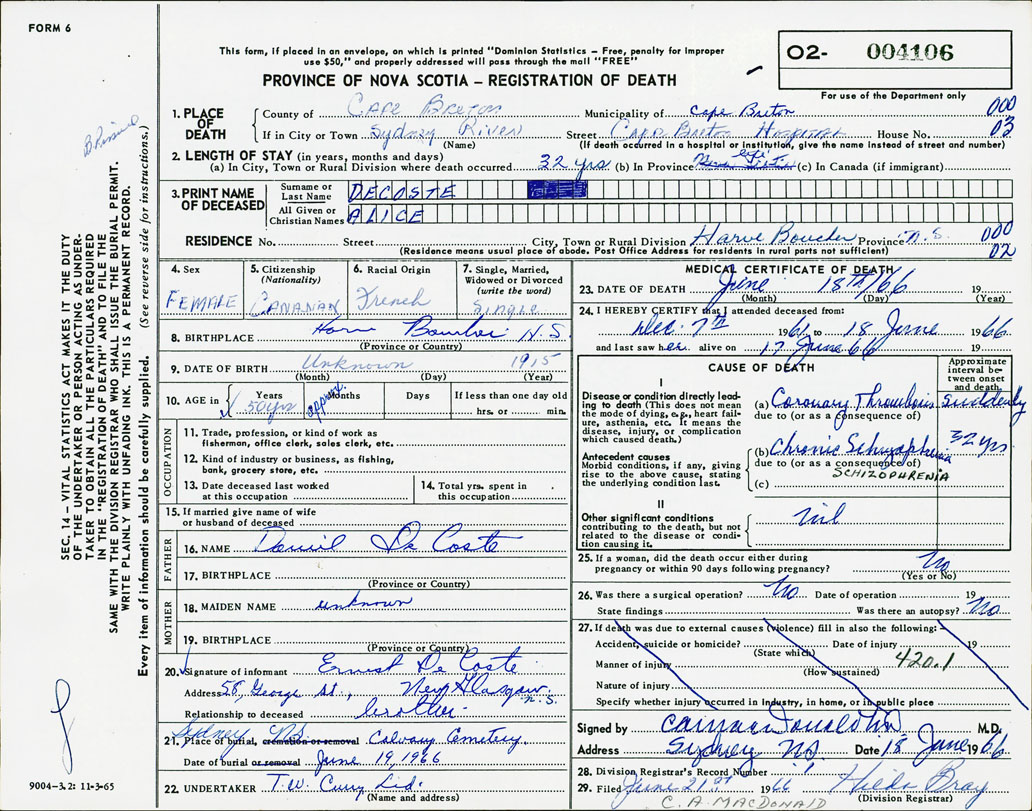 FORM 6
This form, if placed in an envelope, on which is printed "Dominion Statistics – Free, penalty for improper
use $50," and properly addressed will pass through the mail "FREE"
PROVINCE OF NOVA SCOTIA – REGISTRATION OF DEATH
O2- 004106
For use of the Department only
SEC. 14 – VITAL STATISTICS ACT MAKES IT THE DUTY
OF THE UNDERTAKER OR PERSON ACTING AS UNDER-
TAKER TO OBTAIN ALL THE PARTICULARS REQUIRED
IN THE "REGISTRATION OF DEATH" AND TO FILE THE
SAME WITH THE DIVISION REGISTRAR WHO SHALL ISSUE THE BURIAL PERMIT.
WRITE PLAINLY WITH UNFADING INK. THIS IS A PERMANENT RECORD.
Every item of information should be carefully supplied. (See reverse side for instructions.)
1. PLACE OF DEATH
County of Cape Breton Municipality of Cape Breton 000
If in City or Town Sydney River Street Cape Breton Hospital House No. 03
(Name) (If death occurred in a hospital or institution, give the name instead of street and number)
2. LENGTH OF STAY (in years, months and days)
(a) In City, Town or Rural Division where death occurred 32 yrs (b) In Province life (c) In Canada (if immigrant)
3. PRINT NAME OF DECEASED
Surname or Last Name DECOSTE
All Given or Christian Names ALICE
RESIDENCE No. Street City, Town or Rural Division Harve Boucher Province N.S. 000
(Residence means usual place of abode. Post Office Address for residents in rural parts not sufficient) 02
4. Sex FEMALE
5. Citizenship (Nationality) CANANAN
6. Racial Origin French
7. Single, Married, Widowed or Divorced (write the word) Single
8. BIRTHPLACE Harve Boucher N.S.
(Province or Country)
9. DATE OF BIRTH Unknown 1915
(Month) (Day) (Year)
10. AGE in Years 50 yrs approx. Months Days If less than one day old
hrs. or min.
OCCUPATION
11. Trade, profession, or kind of work as
fisherman, office clerk, sales clerk, etc.
12. Kind of industry or business, as fishing,
bank, grocery store, etc.
13. Date deceased last worked
at this occupation
14. Total yrs. spent in
this occupation
15. If married give name of wife
or husband of deceased
FATHER
16. NAME De Coste
17. BIRTHPLACE
(Province or Country)
MOTHER
18. MAIDEN NAME unknown
19. BIRTHPLACE
(Province or Country)
20. Signature of informant Ernest De Coste
Address 58, George St., New Glasgow N.S.
Relationship to deceased brother
Sydney NS
21. Place of burial, cremation or removal Calvary Cemetery.
Date of burial or removal June 19, 1966
22. UNDERTAKER T.W. Curry Ltd.
(Name and address)
9004-3.2: 11-3-65
MEDICAL CERTIFICATE OF DEATH
23. DATE OF DEATH June 18th/66 19
(Month) (Day) (Year)
24. I HEREBY CERTIFY that I attended deceased from:
Dec. 7th 1961 to 18 June 1966
and last saw her alive on 17 June 66 19
CAUSE OF DEATH
Approximate interval between onset and death.
I
Disease or condition directly lead-
ing to death (This does not mean
the mode of dying, e.g., heart fail-
ure, asthenia, etc. It means the
disease, injury, or complication
which caused death.)
(a) Coronary Thrombosis Suddenly
due to (or as a consequence of)
Antecedent causes
Morbid conditions, if any, giving
rise to the above cause, stating
the underlying condition last.
(b) Chronic Schizophrenia 32 yrs
due to (or as a consequence of)
SCHIZOPHRENIA
(c)
II
Other significant conditions
contributing to the death, but not
related to the disease or condi-
tion causing it.
nil
25. If a woman, did the death occur either during
pregnancy or within 90 days following pregnancy? No
(Yes or No)
26. Was there a surgical operation? No Date of operation 19
State findings Was there an autopsy? No
27. If death was due to external causes (violence) fill in also the following: –
Accident, suicide or homicide? Date of injury 19
(State which) 420.1
Manner of injury
(How sustained)
Nature of injury
Specify whether injury occurred in industry, in home, or in public place
Signed by M.D.
Address Sydney NS Date 18 June 1966
28. Division Registrar's Record Number
29. Filed June 21st 1966 Hilda Bray
C. A. MACDONALD (Division Registrar)